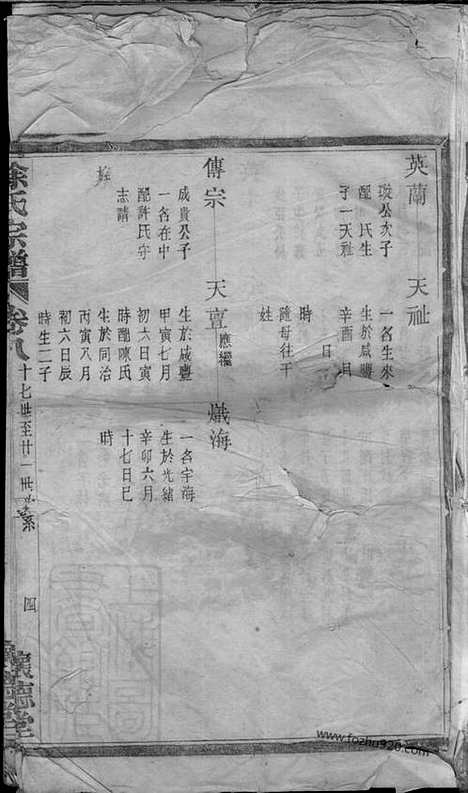 英蘭
公次子
配 氏生
子一天祉
天祉
一名生來
生於咸豐
辛酉 月
日
時
隨母往干
姓
傳宗
成貴公子
一名在中
配許氏守
志請
旌
天亶
應繼
生於咸豐
甲寅七月
初六日寅
時配陳氏
生於同治
丙寅八月
初六日辰
時生二子
熾海
一名宇海
生於光緒
辛卯六月
十七日巳
時
徐氏宗譜
卷八
十七世至廿一世 系
四
懷德堂
www.fozhu920.com